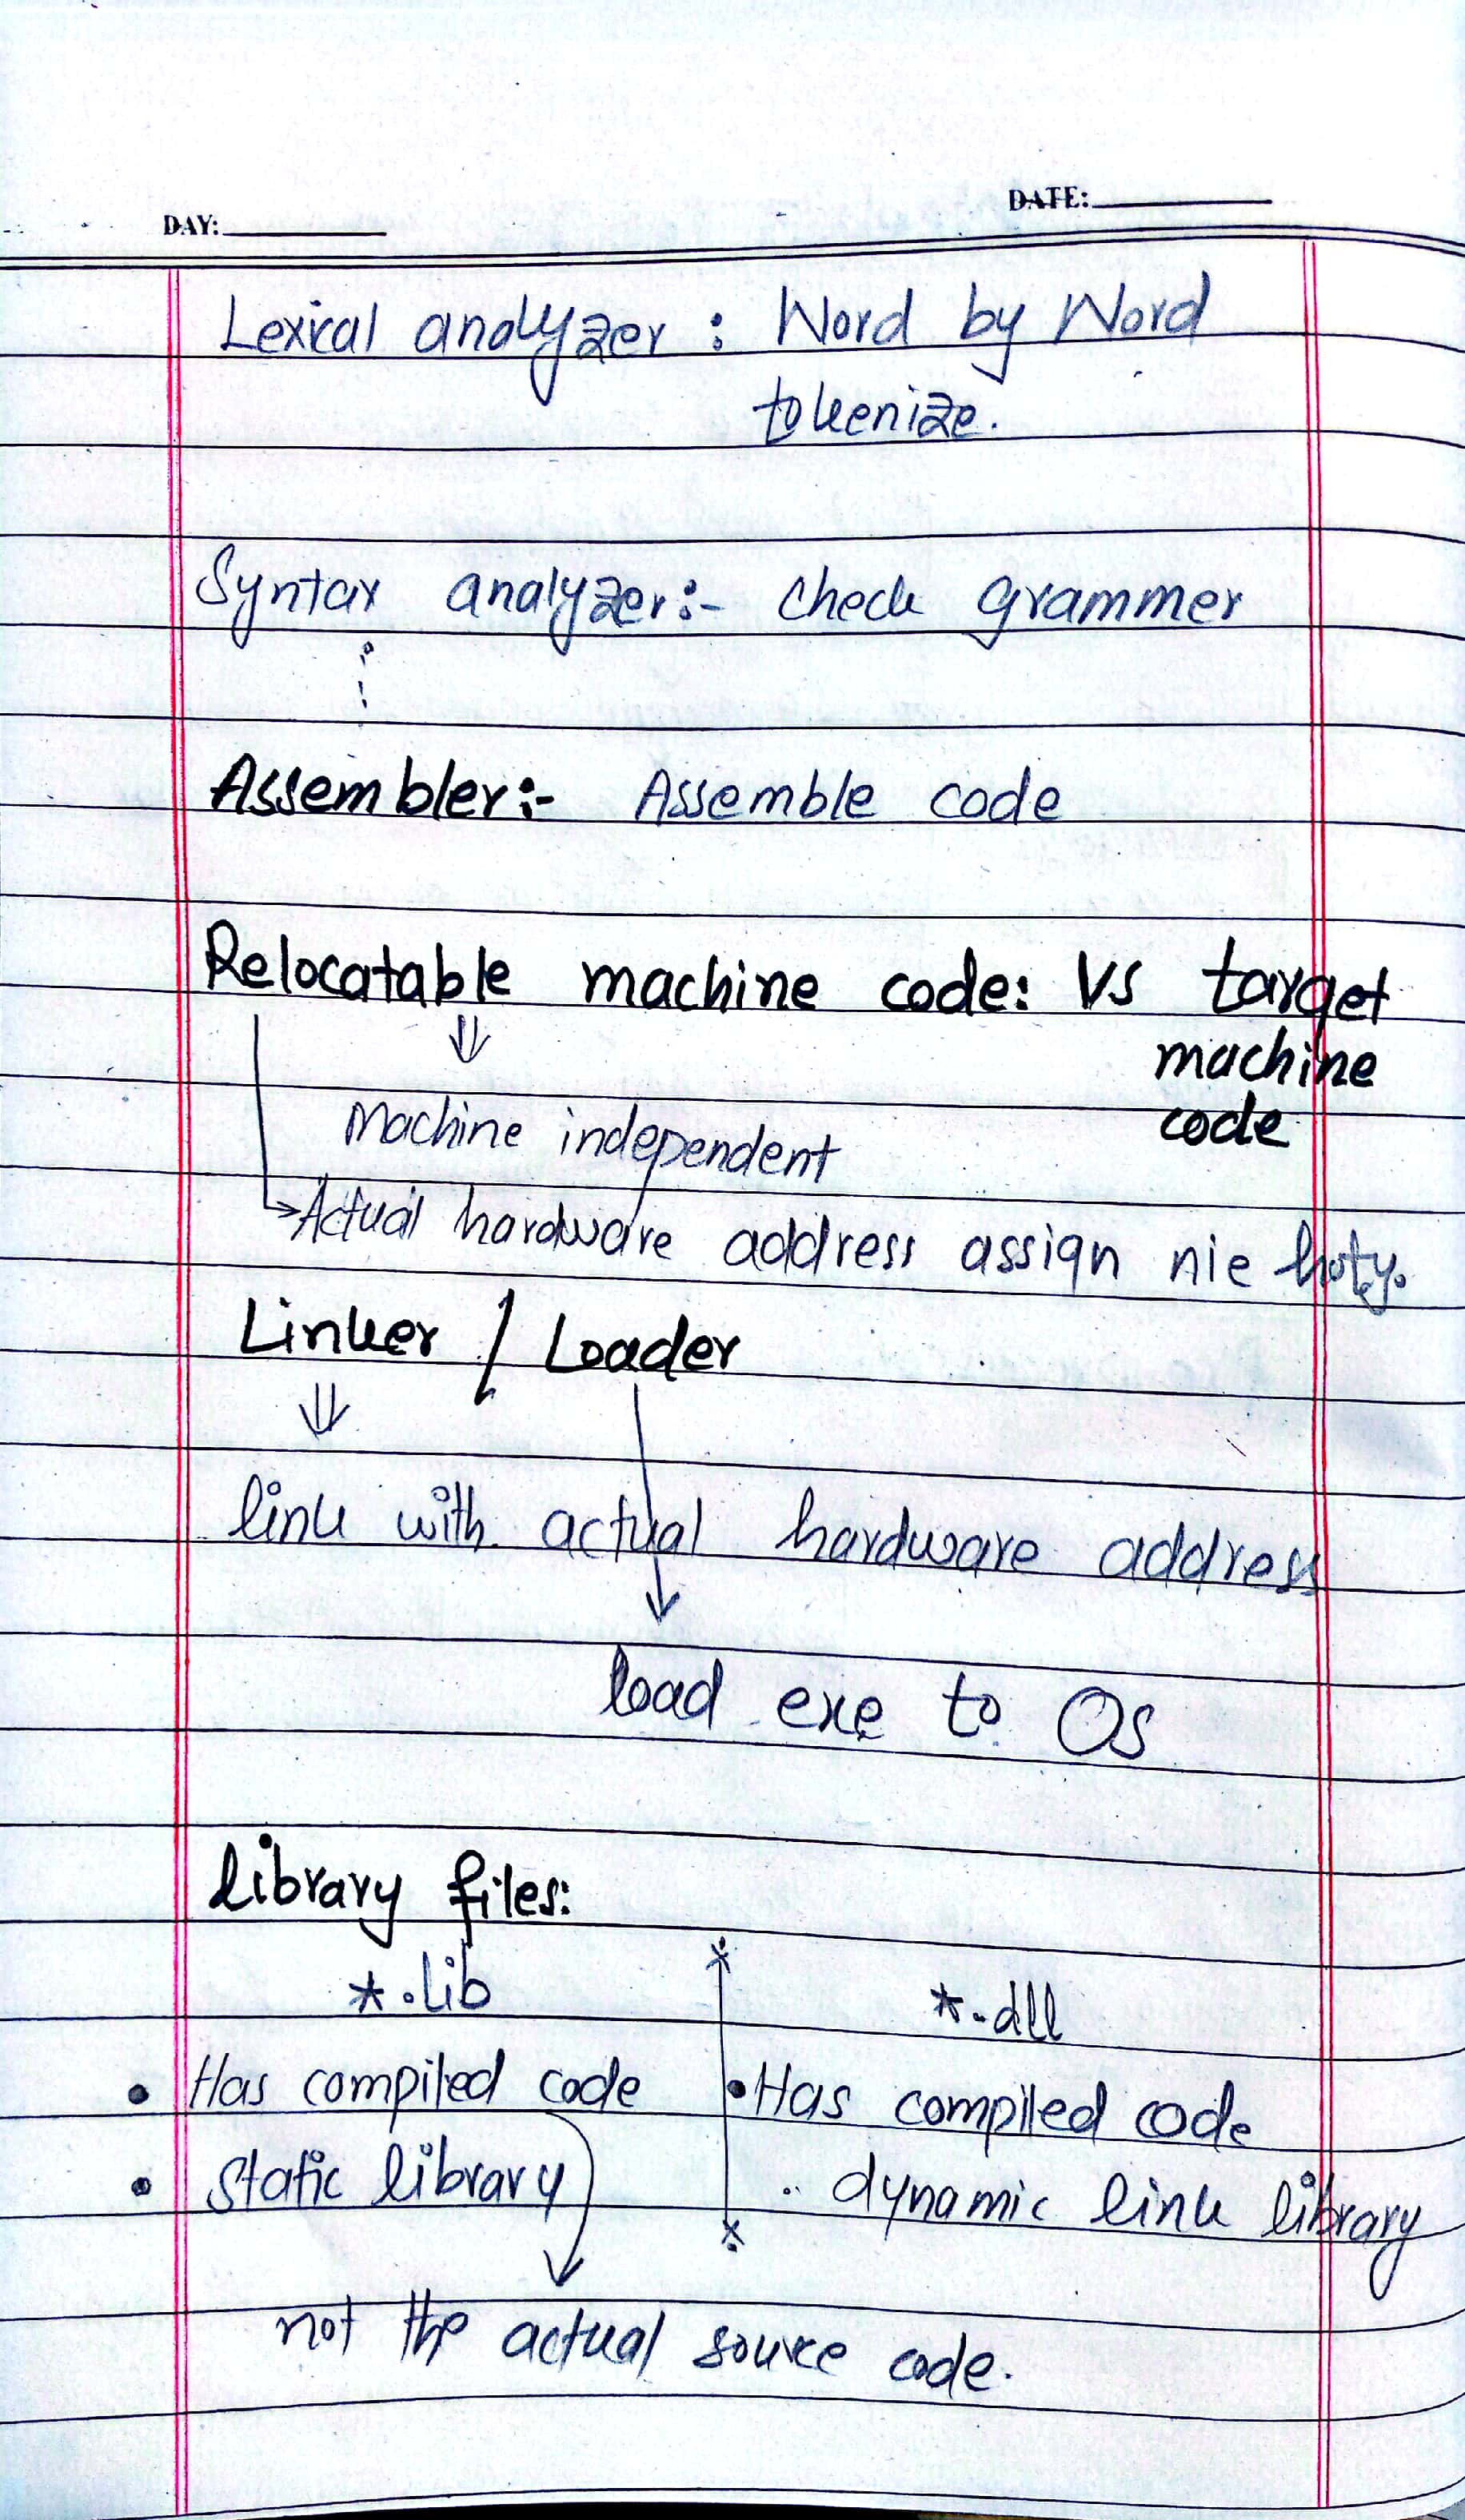 DAY: DATE:
Lexical analyzer : Word by Word
tokenize.
Syntax analyzer:- check grammer
Assembler:- Assemble code
Relocatable machine code: VS target
machine
code
Machine independent
Actual hardware address assign nie hoty.
Linker / Loader
link with actual hardware address
load exe to OS
library files:
*.lib *.dll
• Has compiled code • Has compiled code
• static library .. dynamic link library
not the actual source code.